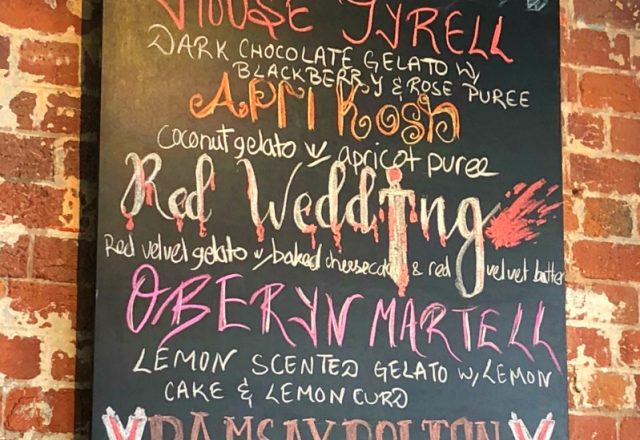 HOUSE TYRELL
DARK CHOCOLATE GELATO W/
BLACKBERRY & ROSE PUREE
APRI KOSH
coconut gelato w/ apricot puree
Red Wedding
Red velvet gelato w/ baked cheesecake & red velvet batter
OBERYN MARTELL
LEMON SCENTED GELATO W/ LEMON
CAKE & LEMON CURD
RAMSAY BOLTON